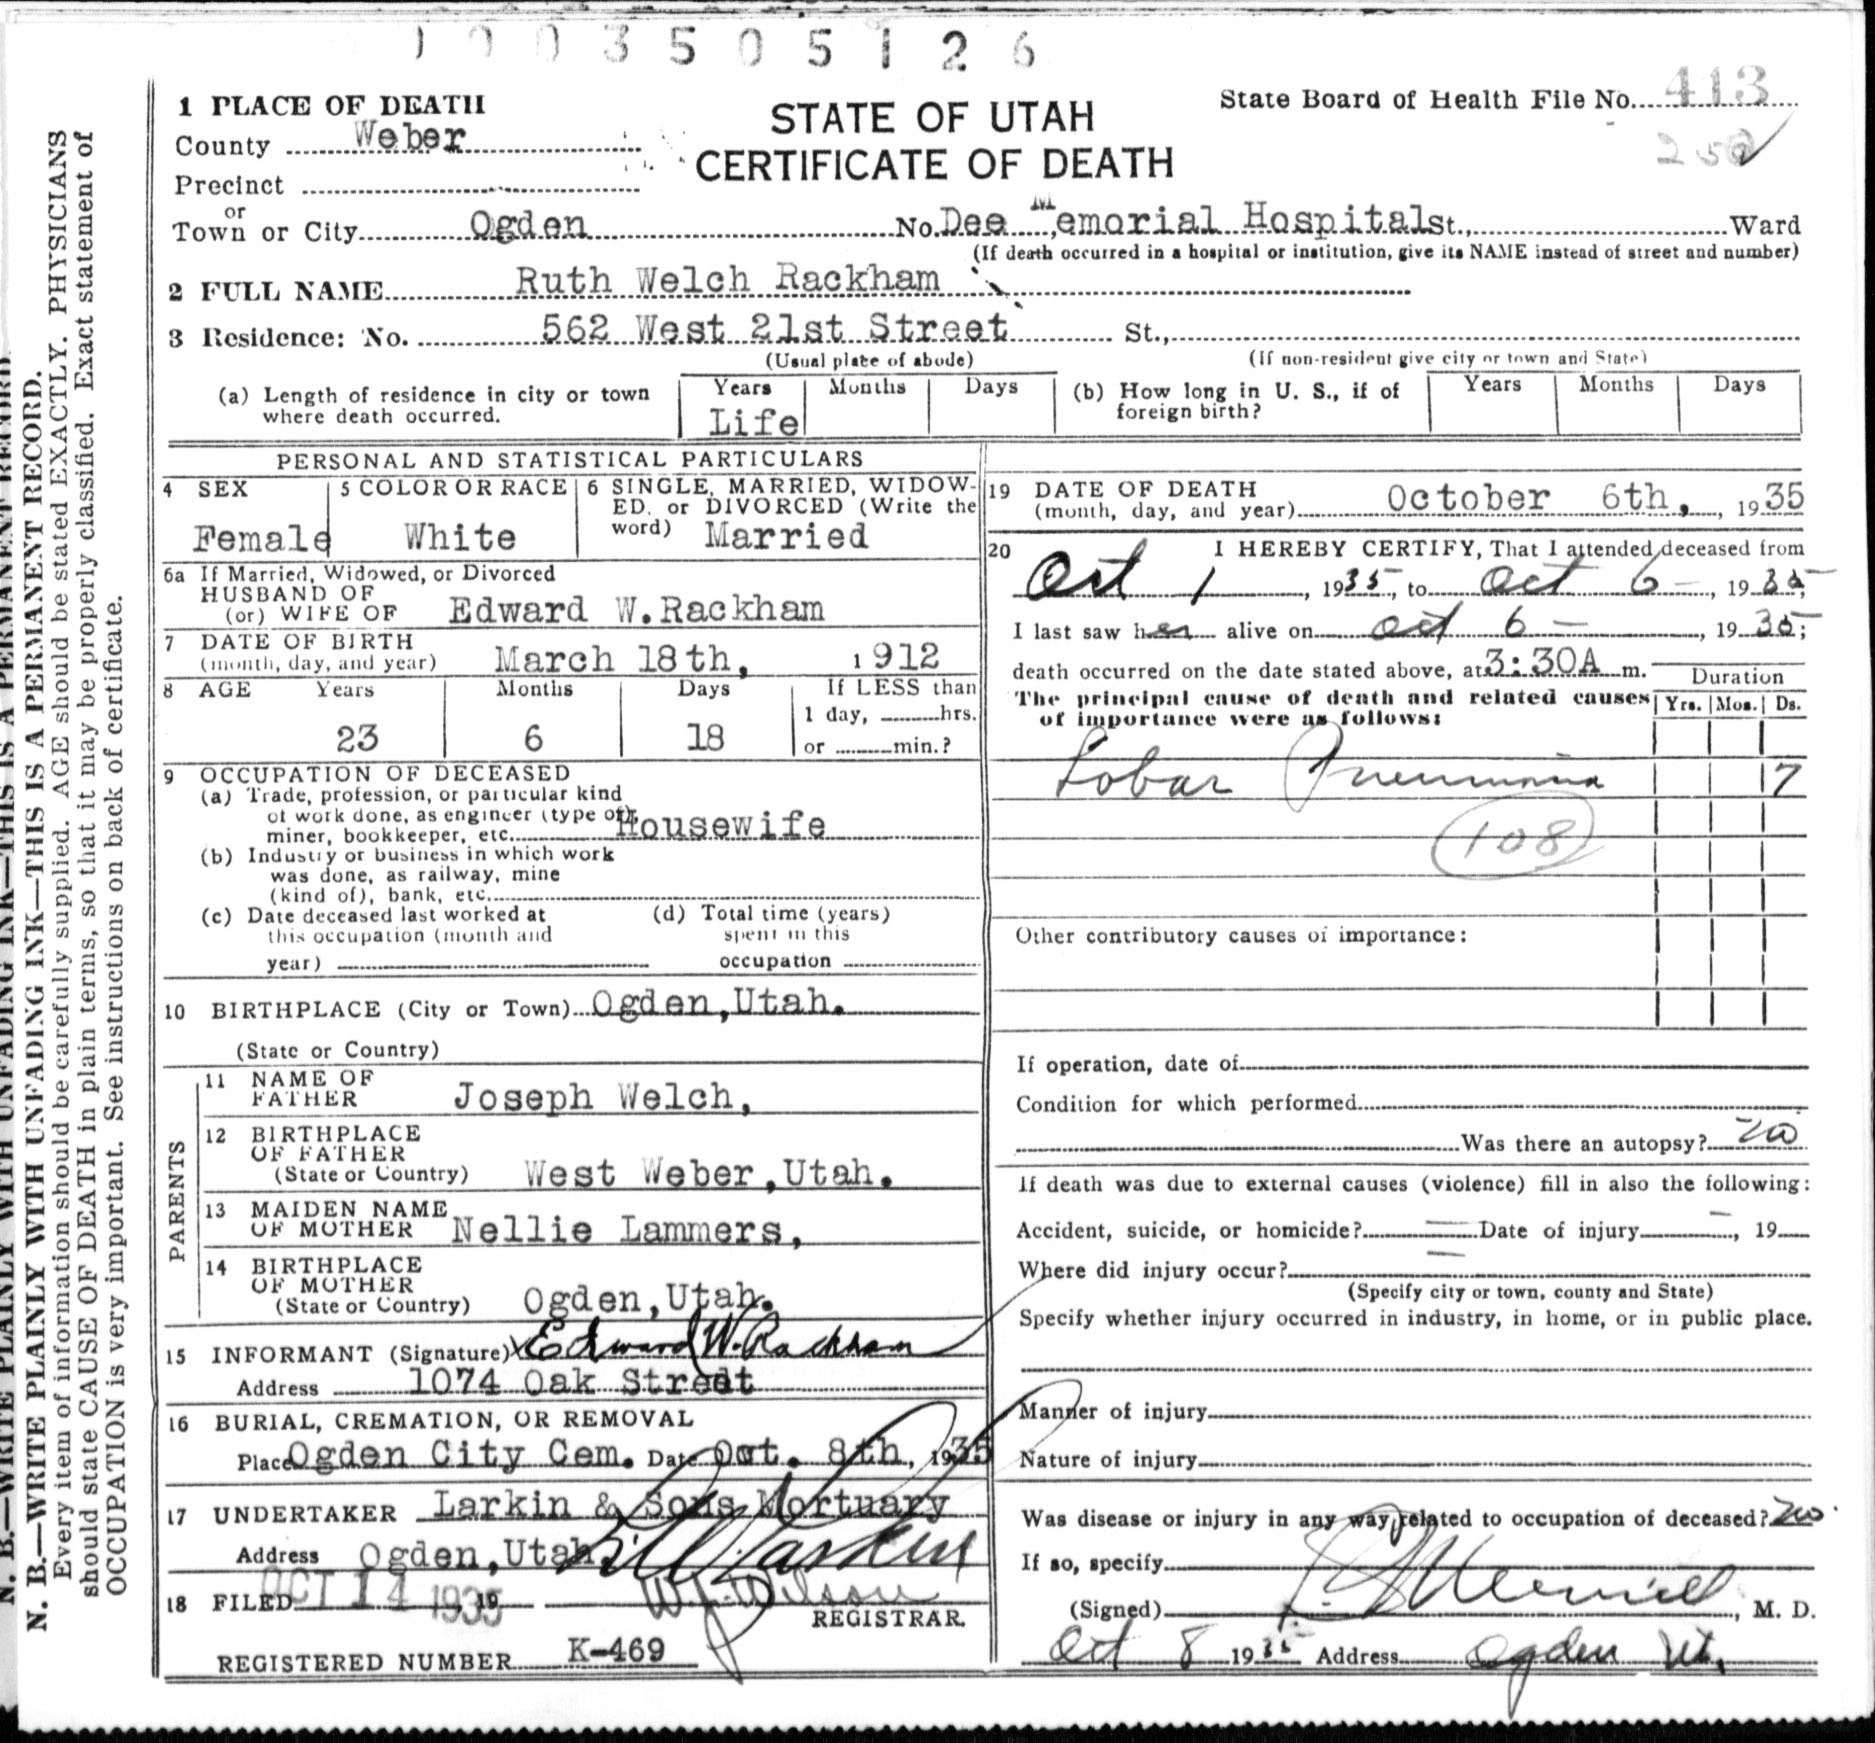 1003505126
1 PLACE OF DEATH
County Weber
Precinct
or
Town or City Ogden No. Dee Memorial Hospital St., Ward
(If death occurred in a hospital or institution, give its NAME instead of street and number)
STATE OF UTAH
CERTIFICATE OF DEATH
State Board of Health File No. 413
2 FULL NAME Ruth Welch Rackham
3 Residence: No. 562 West 21st Street St.,
(Usual place of abode) (If non-resident give city or town and State)
(a) Length of residence in city or town where death occurred. Years Life Months Days
(b) How long in U. S., if of foreign birth? Years Months Days
PERSONAL AND STATISTICAL PARTICULARS
4 SEX Female
5 COLOR OR RACE White
6 SINGLE, MARRIED, WIDOWED, or DIVORCED (Write the word) Married
6a If Married, Widowed, or Divorced
HUSBAND OF
(or) WIFE OF Edward W.Rackham
7 DATE OF BIRTH
(month, day, and year) March 18th, 1912
8 AGE Years Months Days If LESS than
1 day, hrs.
23 6 18 or min.?
9 OCCUPATION OF DECEASED
(a) Trade, profession, or particular kind
of work done, as engineer (type of),
miner, bookkeeper, etc. Housewife
(b) Industry or business in which work
was done, as railway, mine
(kind of), bank, etc.
(c) Date deceased last worked at
this occupation (month and
year)
(d) Total time (years)
spent in this
occupation
10 BIRTHPLACE (City or Town) Ogden,Utah.
(State or Country)
PARENTS
11 NAME OF
FATHER Joseph Welch,
12 BIRTHPLACE
OF FATHER
(State or Country) West Weber,Utah.
13 MAIDEN NAME
OF MOTHER Nellie Lammers,
14 BIRTHPLACE
OF MOTHER
(State or Country) Ogden,Utah.
15 INFORMANT (Signature) X Edward W. Rackham
Address 1074 Oak Street
16 BURIAL, CREMATION, OR REMOVAL
Place Ogden City Cem. Date Oct. 8th, 1935
17 UNDERTAKER Larkin & Sons Mortuary
Address Ogden,Utah.
18 FILED OCT 14 1935 19
REGISTRAR.
REGISTERED NUMBER K-469
19 DATE OF DEATH
(month, day, and year) October 6th, 1935
20 I HEREBY CERTIFY, That I attended deceased from
Oct 1, 1935, to Oct 6-, 1935;
I last saw her alive on Oct 6-, 1935;
death occurred on the date stated above, at 3:30A m.
The principal cause of death and related causes
of importance were as follows:
Duration
Yrs. Mos. Ds.
Lobar Pneumonia 7
108
Other contributory causes of importance:
If operation, date of
Condition for which performed
Was there an autopsy? no
If death was due to external causes (violence) fill in also the following:
Accident, suicide, or homicide? Date of injury , 19
Where did injury occur?
(Specify city or town, county and State)
Specify whether injury occurred in industry, in home, or in public place.
Manner of injury
Nature of injury
Was disease or injury in any way related to occupation of deceased? no
If so, specify
(Signed) Merrill, M. D.
Oct 8 1935 Address Ogden Ut.
N. B.—WRITE PLAINLY WITH UNFADING INK—THIS IS A PERMANENT RECORD.
N. B.—WRITE PLAINLY WITH UNFADING INK—THIS IS A PERMANENT RECORD.
Every item of information should be carefully supplied. AGE should be stated EXACTLY. PHYSICIANS
should state CAUSE OF DEATH in plain terms, so that it may be properly classified. Exact statement of
OCCUPATION is very important. See instructions on back of certificate.